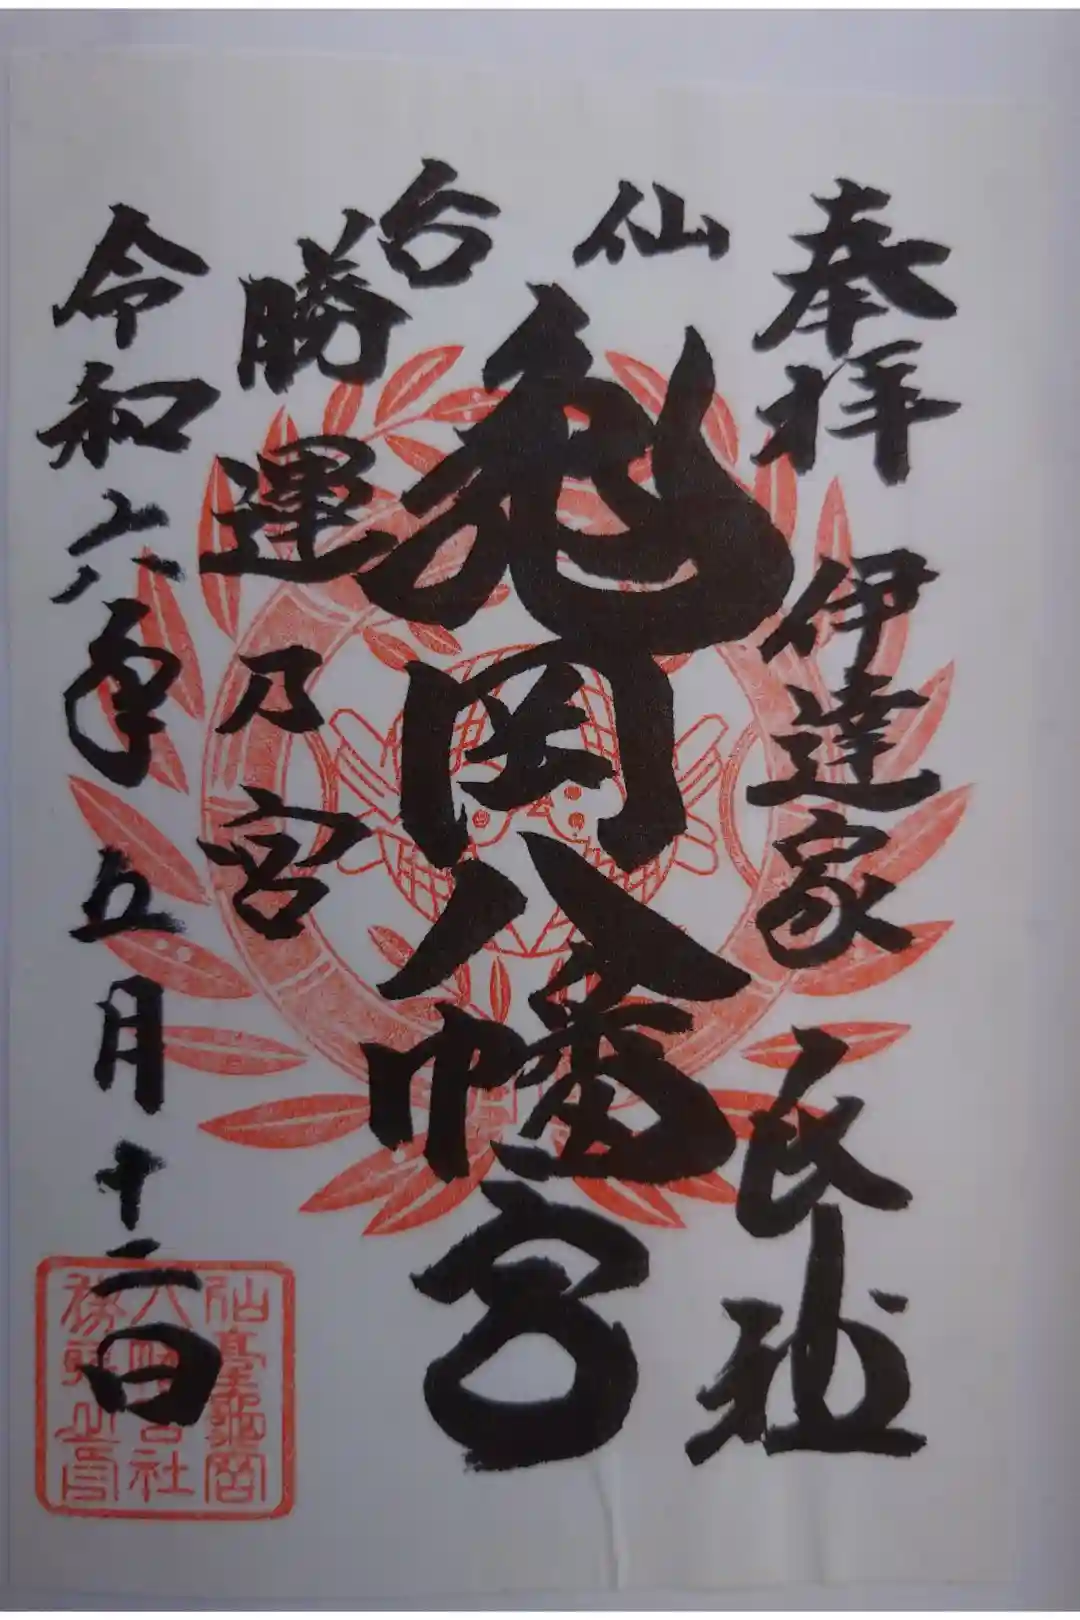 奉拝 伊達家 氏社
仙台
亀岡八幡宮
勝運乃宮
令和六年五月十二日
仙臺龜岡
八幡宮社
務所之印